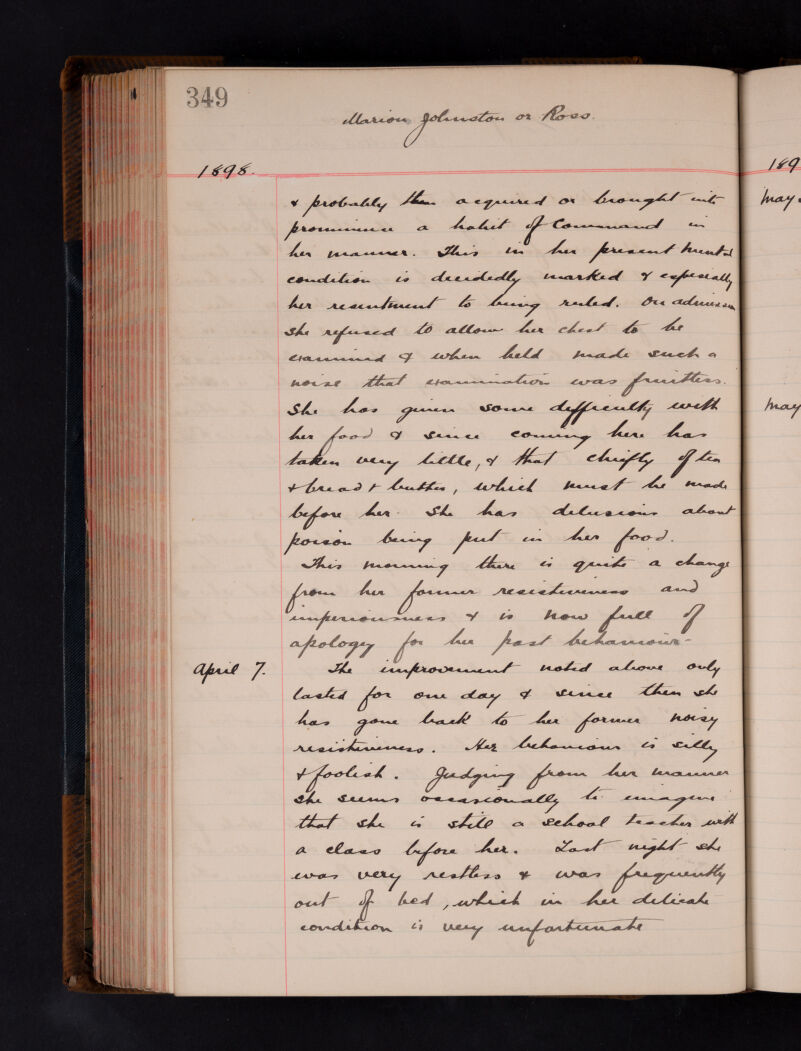 349
Marion Johnston or Ross.
1898.
& probably then acquired or brought into
prominence a habit of Command in
her manner. This in her present mental
condition is decidedly marked & especially
her resentment to being ruled. On admission
she refused to allow her chest to be
examined & when held made such a
noise that examination was fruitless.
She has given some difficulty with
her food & since coming here has
taken very little, & that chiefly of tea
& bread & butter, which must be made
before her. She has delusions about
poison being put in her food.
This morning there is quite a change
from her former resistiveness and
imperiousness & is now full of
apology for her past behaviour-
April 7. The improvement noted above only
lasted for one day & since then she
has gone back to her former noisy
resistiveness. Her behaviour is silly
& foolish. Judging from her manner
she seems occasionally to imagine
that she is still a school teacher with
a class before her. Last night she
was very restless & was frequently
out of bed, which in her delicate
condition is very unfortunate
189
May
May